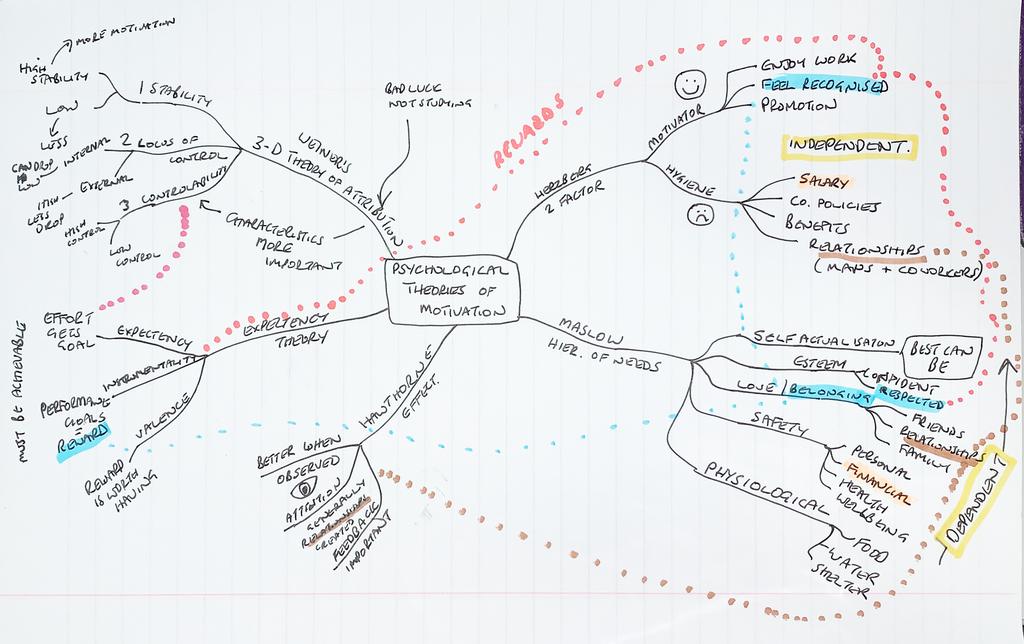 MORE MOTIVATION
HIGH
STABILITY
LOW
LESS
1 STABILITY
2 LOCUS OF
CONTROL
INTERNAL
CAN DROP
LOW
EXTERNAL
HIGH
LESS
DROP
3 CONTROLABILITY
HIGH
CONTROL
LOW
CONTROL
WEINER'S
3-D THEORY OF ATTRIBUTION
BAD LUCK
NOT STUDYING
CHARACTERISTICS
MORE
IMPORTANT
REWARDS
PSYCHOLOGICAL
THEORIES OF
MOTIVATION
HERZBERG
2 FACTOR
MOTIVATOR
ENJOY WORK
FEEL RECOGNISED
PROMOTION
INDEPENDENT.
HYGIENE
SALARY
CO. POLICIES
BENEFITS
RELATIONSHIPS
(MANS + COWORKERS)
MASLOW
HIER. OF NEEDS
SELF ACTUALISATON
BEST CAN
BE
ESTEEM
CONFIDENT
RESPECTED
LOVE / BELONGING
FRIENDS
RELATIONSHIPS
FAMILY
SAFETY
PERSONAL
FINANCIAL
HEALTH
WELLBEING
PHYSIOLOGICAL
FOOD
WATER
SHELTER
DEPENDENT
HAWTHORNE
EFFECT.
BETTER WHEN
OBSERVED
ATTENTION
GENERALLY
RELATIONSHIPS
CREATED
FEEDBACK
IMPORTANT
EXPECTENCY
THEORY
EFFORT
GETS
GOAL
EXPECTENCY
INSTRUMENTALITY
PERFORMANCE
GOALS
=
REWARD
VALENCE
REWARD
IS WORTH
HAVING
MUST BE ACHIEVABLE